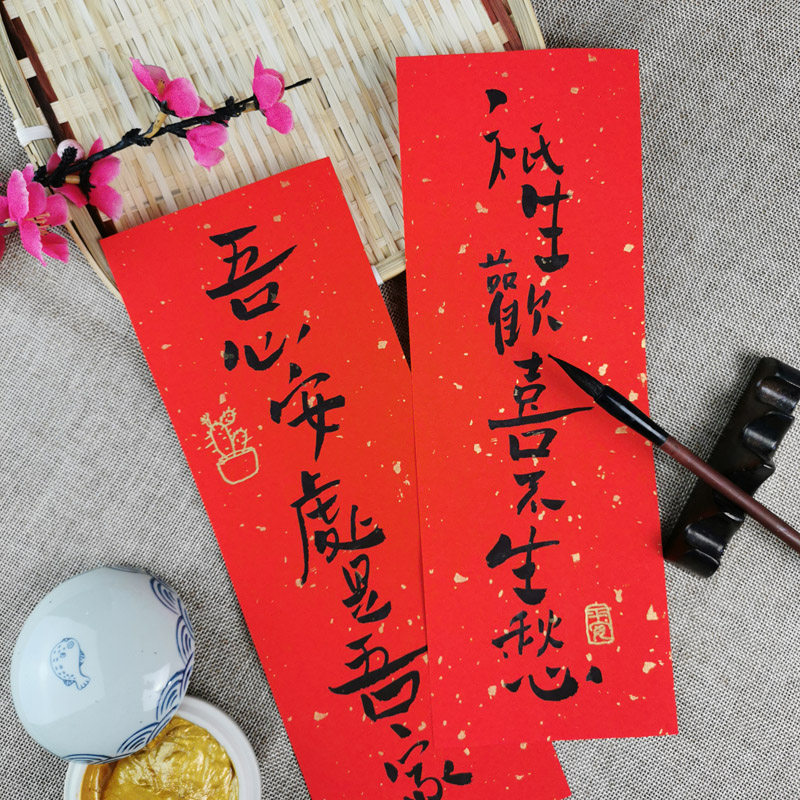 祇生歡喜不生愁
吾心安處是吾家